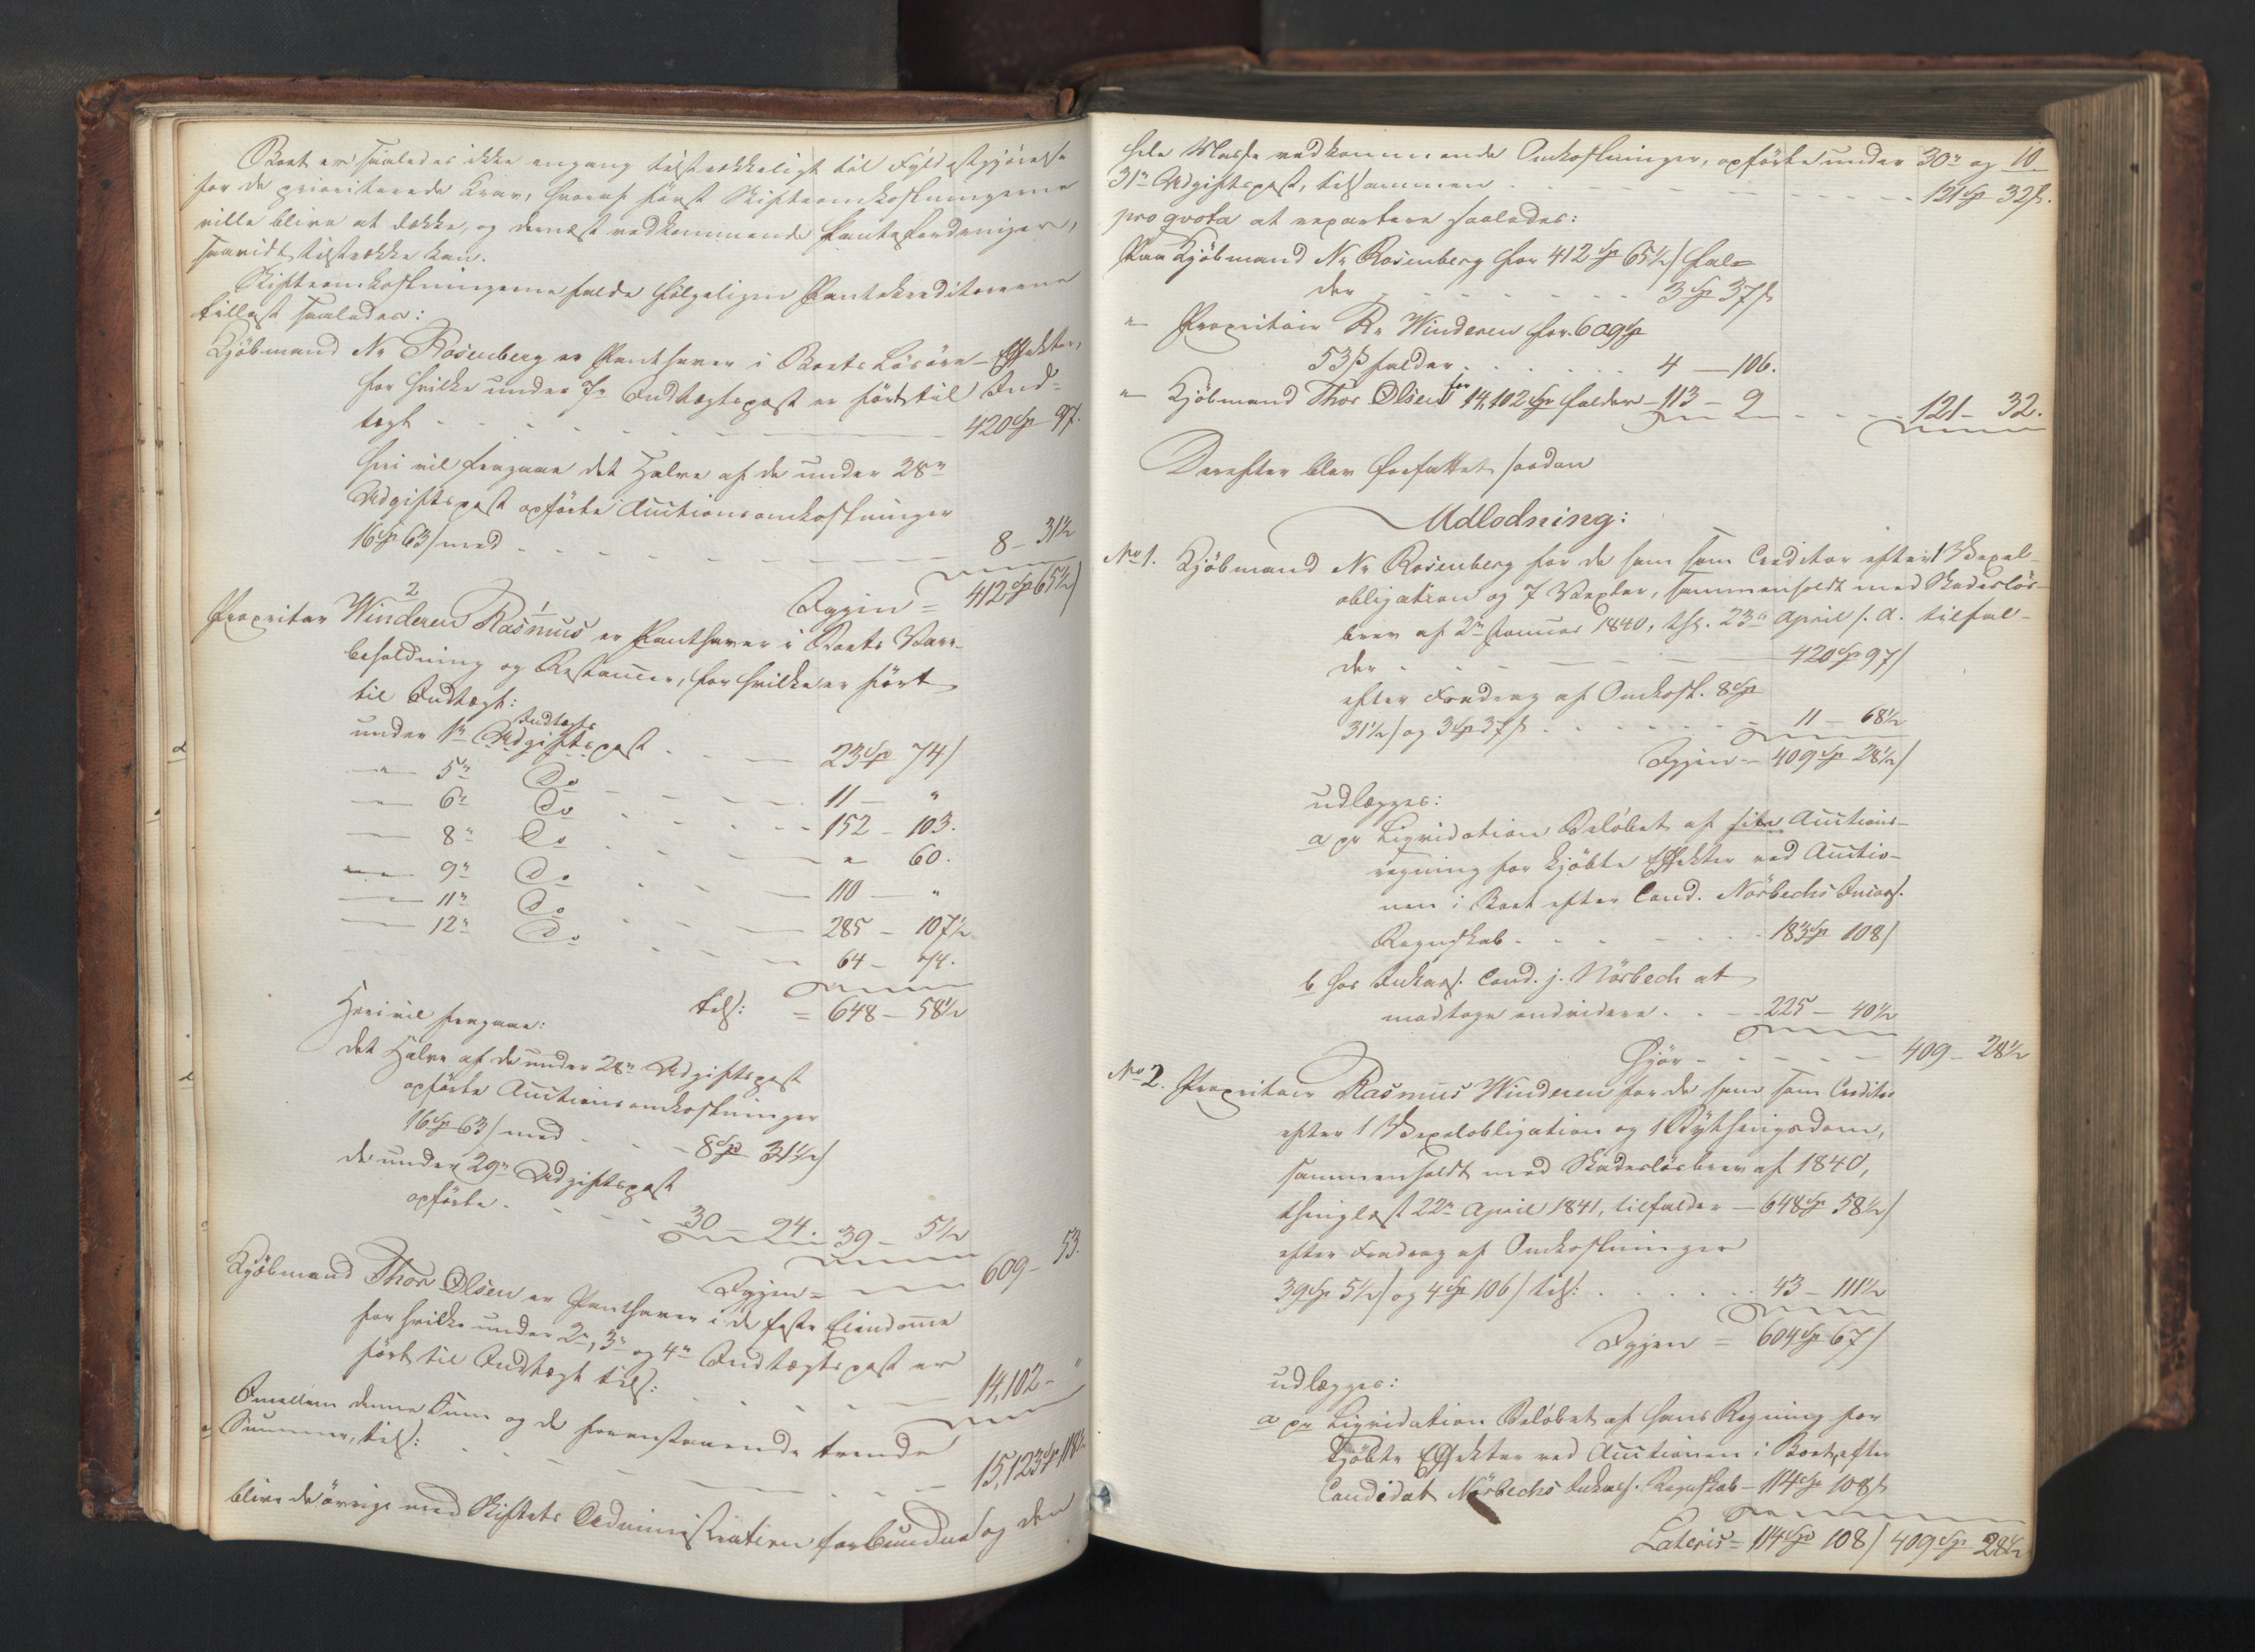 Boet er saaledes ikke engang tilstrækkeligt til Fyldestgjørelse
for de prioriterede Krav, hvoraf først Skifteomkostningerne
ville blive at dække, og dernæst vedkommende Pantefordringer,
saavidt tilstrække kan.
Skifteomkostningerne falde følgeligen Pantekreditorerne
tillast saaledes:
Kjöbmand N. Rosenberg er Panthaver i Boets Lösöre-Effekter,
for hvilke under 7de Indtægtspost er fört til Ind-
tægt - - - 420 Sp 97.
heri vil fragaae det Halve af de under 28de
Udgiftspost opförte Auctionsomkostninger
16 Sp 63 s med - - - 8 - 31½
Igjen = 412 Sp 65½ s
2 1
Propritær Winderen Rasmus er Panthaver i Boets Vare-
beholdning og Restancer, for hvilke er fört
til Indtægt:
Indtægts
under 1n Udgiftspost - - 23 Sp 74 s
— 5n Do - - - 11 — "
— 6n Do - - - 152 - 103.
— 8n Do - - - " 60.
— 9n Do - - - 110 — "
— 11n Do - - - 285 - 107½
— 12n Do - - - 64 - 74.
tils: = 648 - 58½
Heri vil fragaae:
det Halve af de under 28n Udgiftspost
opförte Auctionsomkostninger
16 Sp 63 s med - - - 8 Sp 31½ s
de under 29n Udgiftspost
opförte - - - 30 — 94. 39 - 5½
Igjen = 609 - 53.
Kjöbmand Thor Olsen er Panthaver i de faste Eiendomme
for hvilke under 2n, 3n og 4n Indtægtspost er
fört til Indtægt tils: - - - 14,102 - "
Imellem denne Sum og de foranstaaende tvende
Summer, tils: - - - 15,123 Sp 118½
blive de övrige med Skiftets Administration forbundne og den
10
hele Masse vedkommende Omkostninger, opförte under 30n og
31n Udgiftspost, tilsammen - - - 121 Sp 32 s.
pro qvota at repartere saaledes:
Paa Kjöbmand N. Rosenberg for 412 Sp 65½ s fal-
der - - - 3 Sp 37 s
" Propritair R. Winderen for 609 Sp
53 s falder - - - 4 — 106.
" Kjöbmand Thor Olsen for 14,102 Sp falder - 113 - 9 - - - 121 - 32.
Derefter blev forfattet saadan
Udlodning:
No 1. Kjöbmand N. Rosenberg for de ham som Creditor efter 1 Vexel-
obligation og 7 Vexler, sammenholdt med Skadeslös-
brev af 2n Januar 1840, thl. 23n April s. A. tilfal-
der - - - 420 Sp 97 s
efter Fradrag af Omkost. 8 Sp
31½ s og 3 Sp 37 s - - - 11 — 68½
Igjen - 409 Sp 28½ s
udlægges:
a pr Liqvidation Belöbet af sin Auctions-
regning for kjöbte Effekter ved Auctio-
nen i Boet efter Cand. Nörbechs Incass.
Regnskab - - - 183 Sp 108 s
b hos Inkass. Cand. j. Nörbech at
modtage endvidere - - - 225 — 40½
Gjör - - - 409 - 28½
No 2. Propritair Rasmus Winderen for de ham som Creditor
efter 1 Vexelobligation og 1 Bythingsdom,
sammenholdt med Skadeslösbrev af 1840,
thinglæst 22n April 1841, tilfalder — 648 Sp 58½ s
efter Fradrag af Omkostninger
39 Sp 5½ s og 4 Sp 106 s tils: - - - 43 - 111½
Igjen = 604 Sp 67 s
udlægges:
a pr Liqvidation Belöbet af hans Regning for
kjöbte Effekter ved Auctionen i Boet, efter
Candidat Nörbechs Inkass. Regnskab - 114 Sp 108 s
Lateris = 114 Sp 108 s 409 Sp 28½